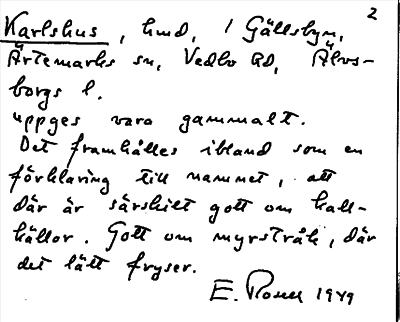 2
Karlshus, hmd, / Gällsbyn,
Ärtemarks sn, Vedbo hd, Älvs-
borgs l.
uppges vara gammalt.
Det framhålles ibland som en
förklaring till namnet, att
där är särskilt gott om kall-
källor. Gott om myrstråk, där
det lätt fryser.
E. Rosell 1949